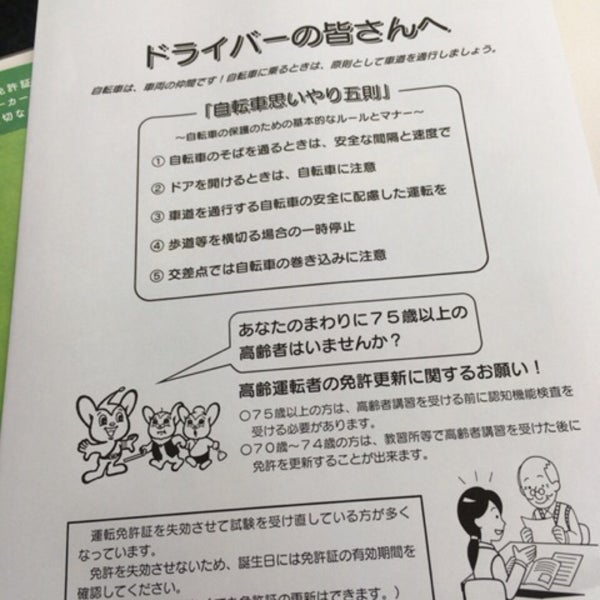 ドライバーの皆さんへ
自転車は、車両の仲間です！自転車に乗るときは、原則として車道を通行しましょう。
『自転車思いやり五則』
～自転車の保護のための基本的なルールとマナー～
① 自転車のそばを通るときは、安全な間隔と速度で
② ドアを開けるときは、自転車に注意
③ 車道を通行する自転車の安全に配慮した運転を
④ 歩道等を横切る場合の一時停止
⑤ 交差点では自転車の巻き込みに注意
あなたのまわりに７５歳以上の
高齢者はいませんか？
高齢運転者の免許更新に関するお願い！
○７５歳以上の方は、高齢者講習を受ける前に認知機能検査を
受ける必要があります。
○７０歳～７４歳の方は、教習所等で高齢者講習を受けた後に
免許を更新することが出来ます。
運転免許証を失効させて試験を受け直している方が多く
なっています。
免許を失効させないため、誕生日には免許証の有効期間を
確認してください。
の更新はできます。）
免許証
ーカー
切な